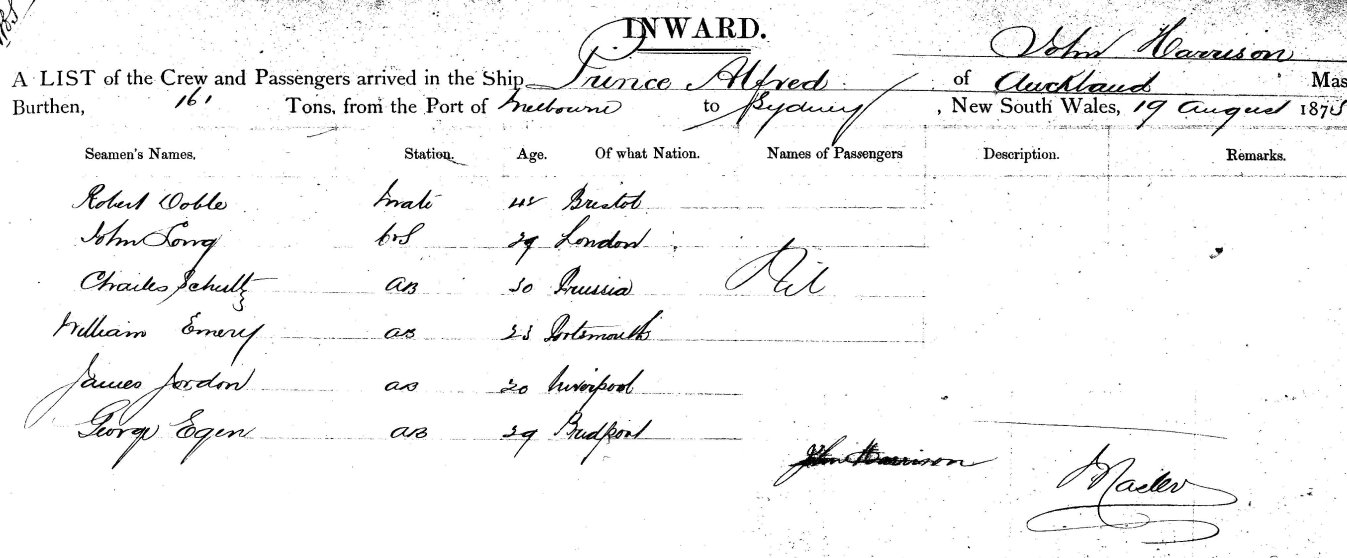 INWARD.
John Harrison
A LIST of the Crew and Passengers arrived in the Ship Prince Alfred of Auckland Mas
Burthen, 161 Tons, from the Port of Melbourne to Sydney, New South Wales, 19 August 187
Seamen's Names. Station. Age. Of what Nation. Names of Passengers Description. Remarks.
Robert Doble Mate 42 Bristol
John Long 29 London
Charles Schultz AB 30 Prussia Nil
William Emery AB 23 Portsmouth
James Jordon AB 20 Liverpool
George Egen AB 29 Bridport
John Harrison
Master